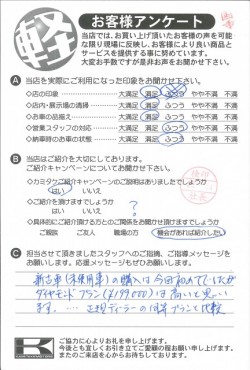 軽
お客様アンケート
当店では、お買い上げ頂いたお客様の声を可能
な限り現場に反映し、お客様により良い商品と
サービスを提供する事に努めています。
大変お手数ですが是非お声をお聞かせ下さい。
A 当店を実際にご利用になった印象をお聞かせ下さい。
◇店の印象 大満足 満足 ふつう やや不満 不満
◇店内・展示場の清掃 大満足 満足 ふつう やや不満 不満
◇お車の品揃え 大満足 満足 ふつう やや不満 不満
◇営業スタッフの対応 大満足 満足 ふつう やや不満 不満
◇納車時のお車の状態 大満足 満足 ふつう やや不満 不満
B 当店はご紹介を大切にしております。
ご紹介キャンペーンについてお聞かせ下さい。
◇カミタケご紹介キャンペーンのご説明はありましたでしょうか
はい いいえ
◇ご紹介を頂けますでしょうか
はい いいえ ?
◇具体的にご紹介頂ける方とのご関係をお聞かせ頂けますでしょうか
ご親族 ご友人 職場の方 機会があれば紹介したい
C 担当させて頂きましたスタッフへのご指摘、ご指導メッセージを
お願いします。応援メッセージもぜひお願いします。
新古車(未使用車)の購入は今回初めてでしたが
ダイヤモンドプラン(¥199000)は高いと思い
ます。… 正規ディーラーの同等プランと比較
K
ご協力に心よりお礼を申し上げます。
今後とも宜しくお引き立てご愛顧の程お願い申し上げます。
またのご来店を心からお待ちしております。